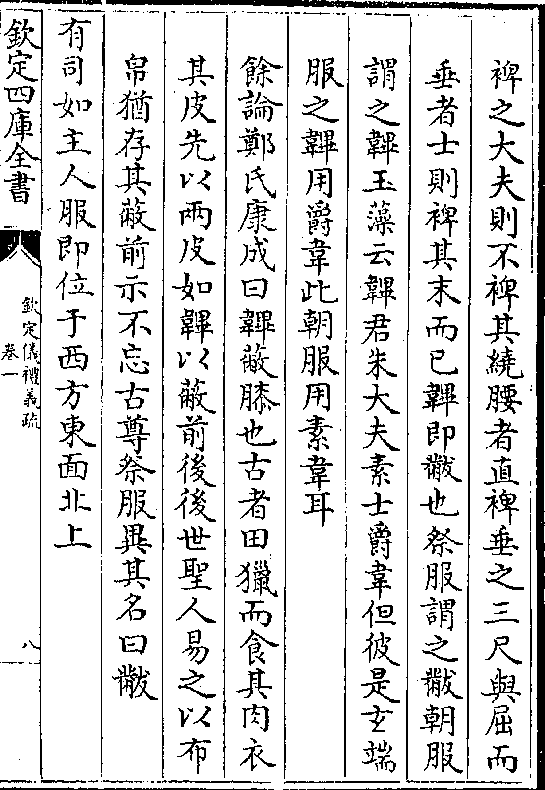 裨之大夫則不裨其繞腰者直裨垂之三尺與屈而
垂者士則裨其末而已韠即黻也祭服謂之黻朝服
謂之韠玉藻云韠君朱大夫素士爵韋但彼是玄端
服之韠用爵韋此朝服用素韋耳
餘論鄭氏康成曰韠蔽膝也古者田獵而食其肉衣
其皮先以兩皮如韠以蔽前後後世聖人易之以布
帛猶存其蔽前示不忘古尊祭服異其名曰黻
有司如主人服即位于西方東面北上
欽定四庫全書
欽定儀禮義疏
卷一
八